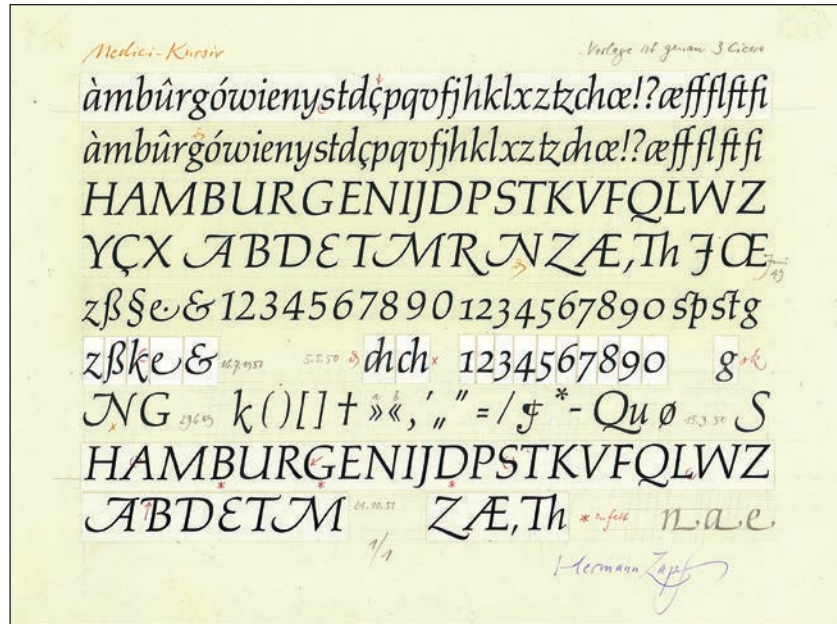 Medici-Kursiv Vorlage ist genau 3 Cicero
àmbûrgówienystdçpqvfjhklxztzchœ!?æffflftfi
àmbûrgówienystdçpqvfjhklxztzchœ!?æffflftfi
HAMBURGENIJDPSTKVFQLWZ
YÇX ABDETMRNZÆ,Th JŒ Juni 49
zß§e&1234567890 1234567890 spstg
zßke& 5.5.50 chch× 1234567890 g ok
NG k()[]† a b »«,‘„” =/ *- Qu ø S
HAMBURGENIJDPSTKVFQLWZ
ABDETM ZÆ,Th * zu fett nae
1/1
Hermann Zapf